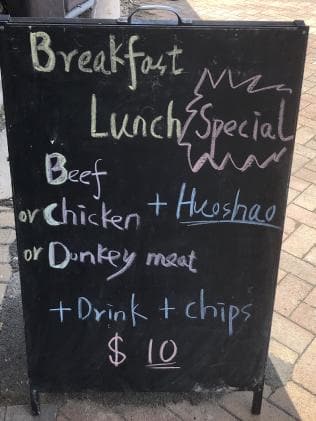 Breakfast
Lunch Special
Beef
or Chicken + Huoshao
or Donkey meat
+ Drink + chips
$ 10